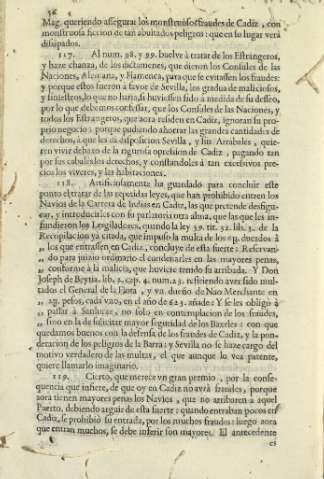 56
Mag. queriendo assegurar los monstruosos fraudes de Cadiz, con
monstruosa ficcion de tan abultados peligros: que en su lugar verà
disipados.
117. Al num. 98. y 99. buelve à tratar de los Estrangeros,
y haze chanza, de los dictamenes, que dieron los Consules de las
Naciones, Alemana, y Flamenca, para que se evitassen los fraudes:
y porque estos fueron à favor de Sevilla, les gradua de maliciosos,
y siniestros, lo que no haria, si huviessen sido à medida de su deseo,
por lo que debemos confessar, que los Consules de las Naciones, y
todos los Estrangeros, que aora residen en Cadiz, ignoran su pro-
prio negocio: porque pudiendo ahorrar las grandes cantidades de
derechos, à que les dà disposicion Sevilla, y sus Arrabales, quie-
ren vivir debaxo de la rigurosa opresion de Cadiz, pagando tan
por sus cabales los derechos, y constandoles à tan excessivos pre-
cios los viveres, y las habitaciones.
118. Artificiosamente ha guardado para concluir este
punto el tratar de las repetidas leyes, que han prohibido entren los
Navios de la Carrera de Indias en Cadiz, las que pretende desfigu-
rar, y introducirles con su parlatoria otra alma, que las que les in-
fundieron los Legisladores, quando la ley 39. tit. 32. lib. 3. de la
Recopilacion yà citada, que impuso la multa de los 6y. ducados à
,, los que entrassen en Cadiz, concluye de esta suerte: Reservan-
,, do para juizio ordinario el condenarles en las mayores penas,
,, conforme à la malicia, que huviere tenido su arribada. Y Don
Joseph de Beytia, lib. 2. cap. 4. num. 23. refiriendo aver sido mul-
tados el General de la Flota, y un dueño de Nao Merchante en
,, 2y. pesos, cada vno, en el año de 623. añade: Y se les obligò à
,, passar à Sanlucar, no solo en contemplacion de los fraudes,
,, sino en la de solicitar mayor seguridad de los Baxeles: con que
quedamos buenos con la defensa de los fraudes de Cadiz, y la pon-
deracion de los peligros de la Barra: y Sevilla no se haze cargo del
motivo verdadero de las multas, el que aunque lo vea patente,
quiere llamarlo imaginario.
119. Cierto, que merece vn gran premio, por la conse-
quencia que infiere, de que oy en Cadiz no avrà fraudes, porque
aora tienen mayores penas los Navios, que no arribaren à aquel
Puerto, debiendo arguir de esta suerte: quando entraban pocos en
Cadiz, se prohibiò su entrada, por los muchos fraudes: luego aora
que entran muchos, se debe inferir son mayores. El antecedente
es